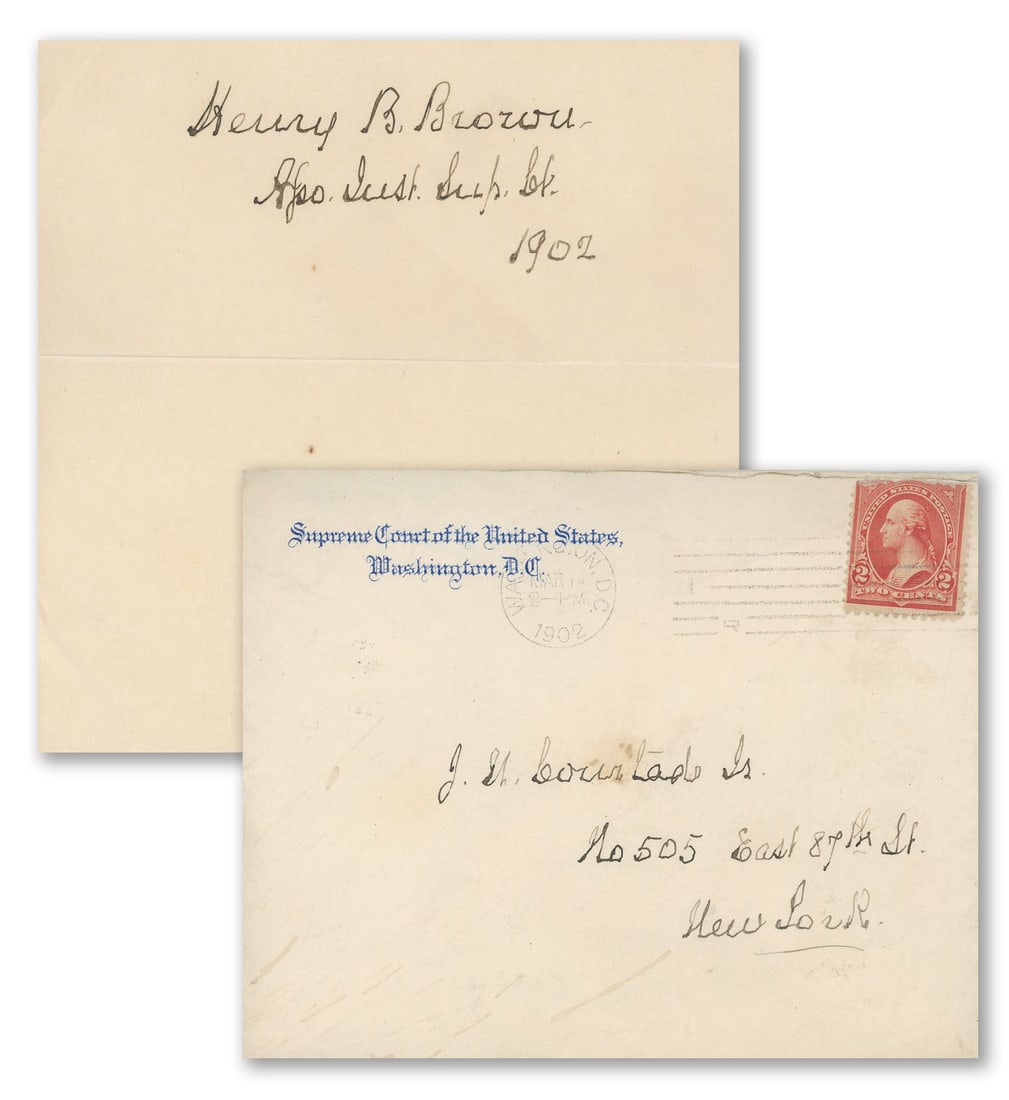 Henry B. Brown
Asso. Just. Sup. Ct.
1902
Supreme Court of the United States,
Washington, D.C.
WASHINGTON, D.C.
MAR 14
2-PM
1902
UNITED STATES POSTAGE
2 2
TWO CENTS
J. Courtade Jr.
No 505 East 87th St.
New York.